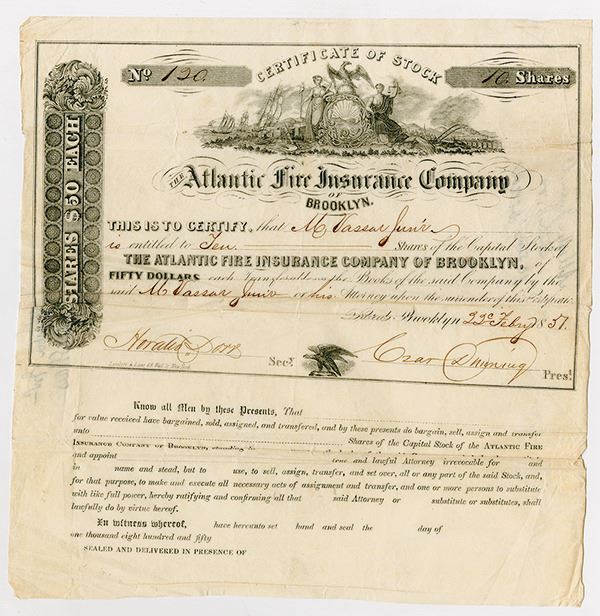 CERTIFICATE OF STOCK
No 120.
10 Shares
SHARES $50 EACH
THE Atlantic Fire Insurance Company
OF
BROOKLYN.
THIS IS TO CERTIFY, that M Vassar Junr
is entitled to Ten Shares of the Capital Stock of
THE ATLANTIC FIRE INSURANCE COMPANY OF BROOKLYN, of
FIFTY DOLLARS each Transferable on the Books of the said Company by the
said M Vassar Junr or his Attorney upon the surrender of this Certificate
Brooklyn 22d Feby 1851.
Horatio Dorr Secy.
Czar Dunning Prest.
Know all Men by these Presents, That
for value received have bargained, sold, assigned, and transfered, and by these presents do bargain, sell, assign and transfer
unto Shares of the Capital Stock of the ATLANTIC FIRE
INSURANCE COMPANY OF BROOKLYN, standing
and appoint true and lawful Attorney irrevocable for and
in name and stead, but to use, to sell, assign, transfer, and set over, all or any part of the said Stock, and,
for that purpose, to make and execute all necessary acts of assignment and transfer, and one or more persons to substitute
with like full power, hereby ratifying and confirming all that said Attorney or substitute or substitutes, shall
lawfully do by virtue hereof.
In witness whereof, have hereunto set hand and seal the day of
one thousand eight hundred and fifty
SEALED AND DELIVERED IN PRESENCE OF